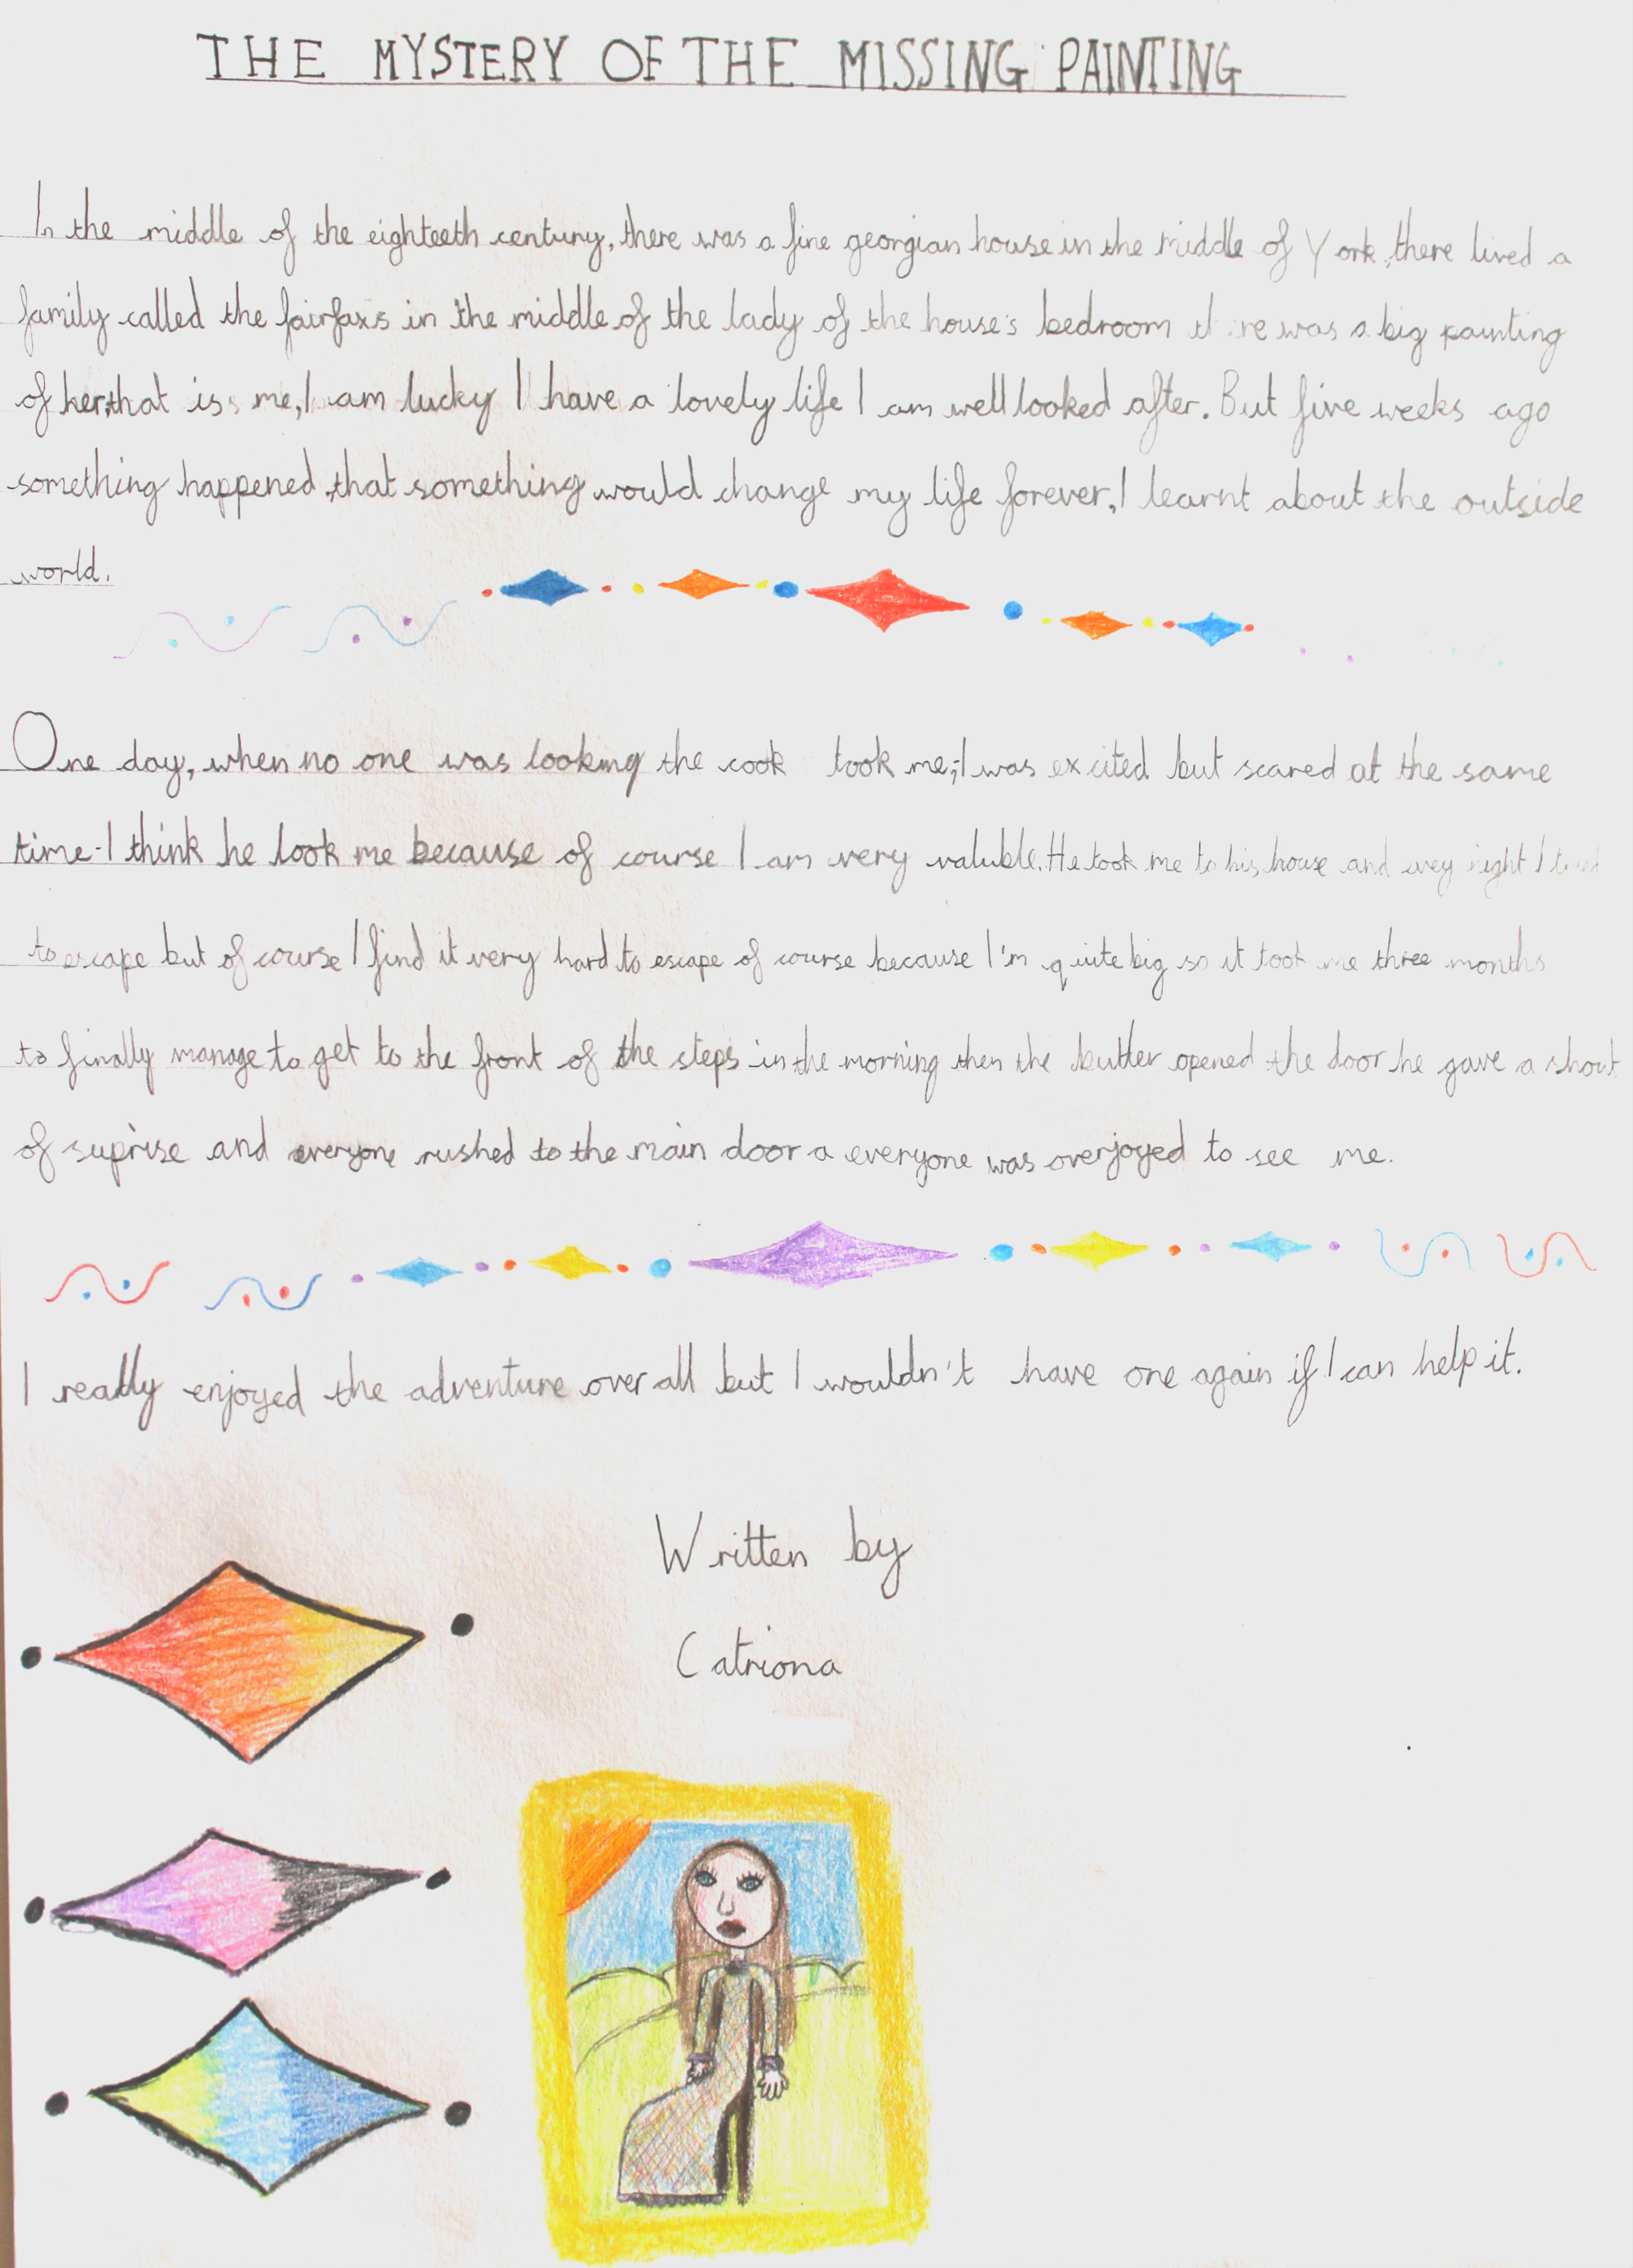 THE MYSTERY OF THE MISSING PAINTING
In the middle of the eighteeth century, there was a fine georgian house in the middle of York, there lived a
family called the fairfaxs in the middle of the lady of the house's bedroom there was a big painting
of her, that is me, I am lucky I have a lovely life I am well looked after. But five weeks ago
something happened, that something would change my life forever, I learnt about the outside
world.
One day, when no one was looking the cook took me, I was excited but scared at the same
time - I think he took me because of course I am very valuble. He took me to his house and evey night I tried
to escape but of course I find it very hard to escape of course because I'm quite big so it took me three months
to finally manage to get to the front of the steps in the morning then the butler opened the door he gave a shout
of suprise and everyone rushed to the main door a everyone was overjoyed to see me.
I really enjoyed the adventure over all but I wouldn't have one again if I can help it.
Written by
Catriona